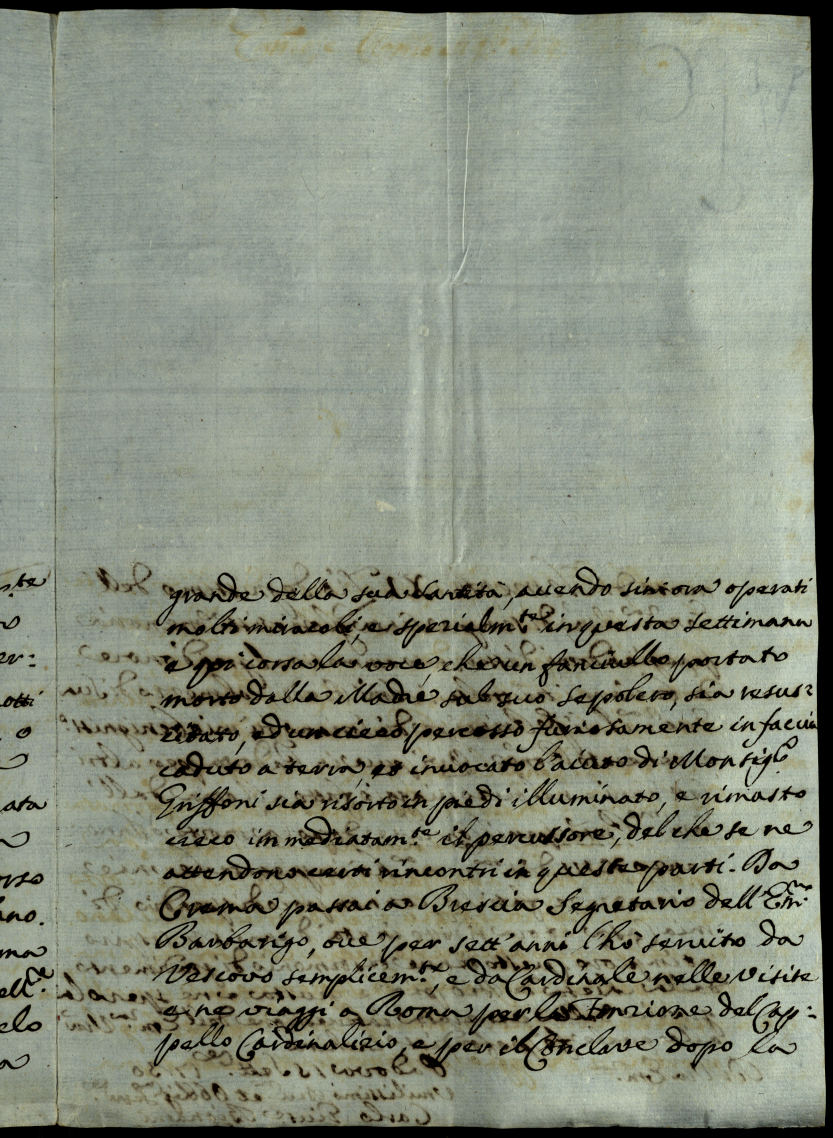 grande della sua Santità, avendo sinora operati
molti miracoli, e spezialm.te in questa settimana
è poi corsa la voce che un fanciullo portato
morto dalla Madre sul suo sepolcro, sia resus:
citato, ed un cieco percosso furiosamente in faccia
caduto a terra, et invocato l'aiuto di Monsig.r
Griffoni sia risorto in piedi illuminato, e rimasto
cieco immediatam.te il percussore, del che se ne
attendono certi rincontri in queste parti. Da
Crema passai a Brescia Segretario dell'Em.mo
Barbarigo, ove per sett'anni l'hò servito da
Vescovo semplicem.te, e da Cardinale nelle visite
e ne viaggi a Roma per la Funzione del Cap:
pello Cardinalizio, e per il Conclave dopo la